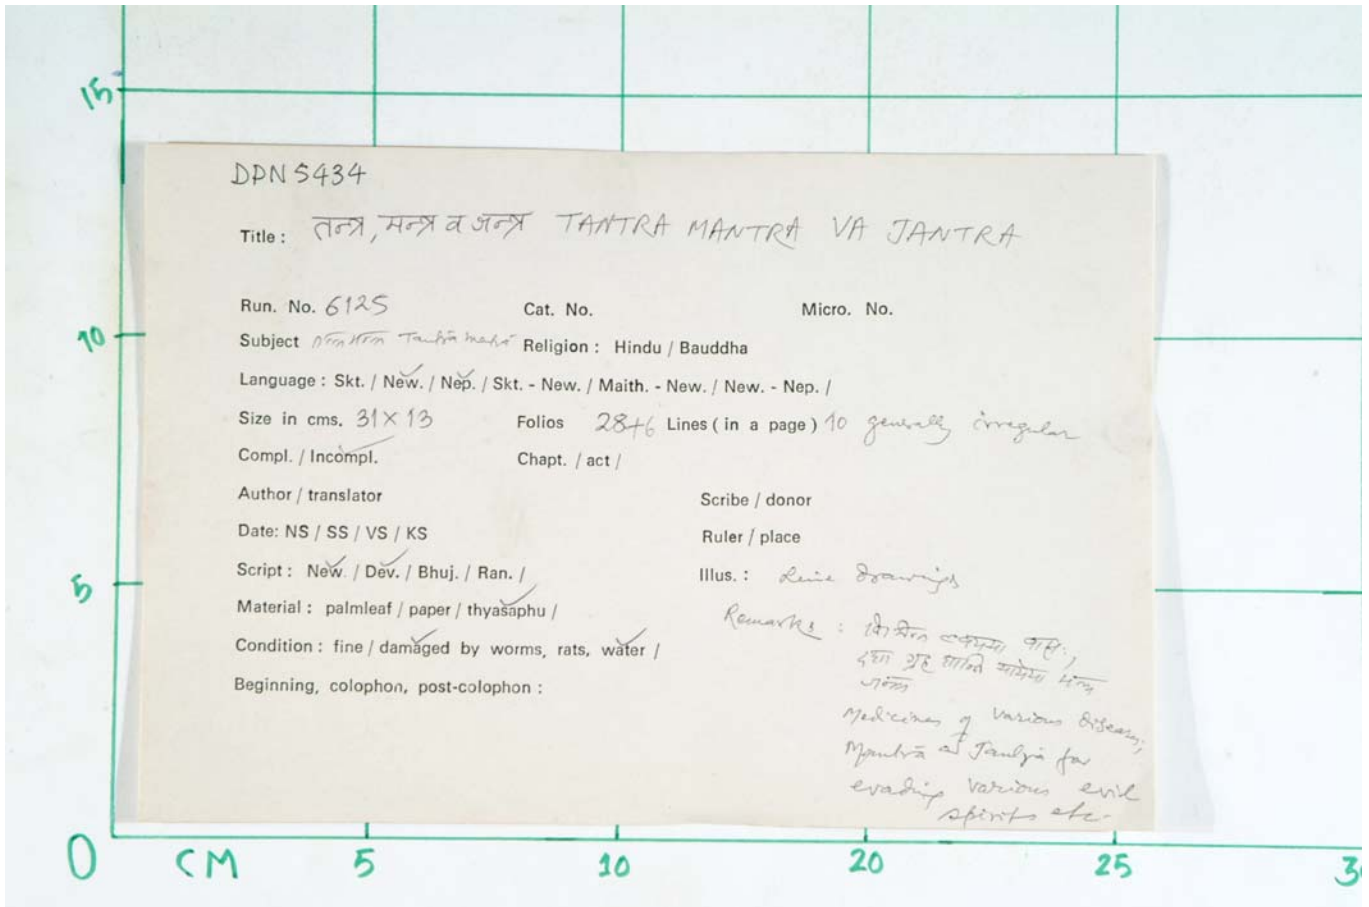 15
DPN 5434
Title : तन्त्र, मन्त्र व जन्त्र TANTRA MANTRA VA JANTRA
Run. No. 6125 Cat. No. Micro. No.
10
Subject Tantra Religion : Hindu / Bauddha
Language : Skt. / New. / Nep. / Skt. - New. / Maith. - New. / New. - Nep. /
Size in cms. 31 × 13 Folios 28+6 Lines ( in a page ) 10 generally irregular
Compl. / Incompl. Chapt. / act /
Author / translator Scribe / donor
Date: NS / SS / VS / KS Ruler / place
5
Script : New. / Dev. / Bhuj. / Ran. / Illus. : Line drawings
Material : palmleaf / paper / thyasaphu / Remarks :
Condition : fine / damaged by worms, rats, water /
ग्रह शान्ति
Beginning, colophon, post-colophon :
Medicines of various diseases;
Mantra & Jantra for
evading various evil
spirits etc-
0 CM 5 10 20 25 30